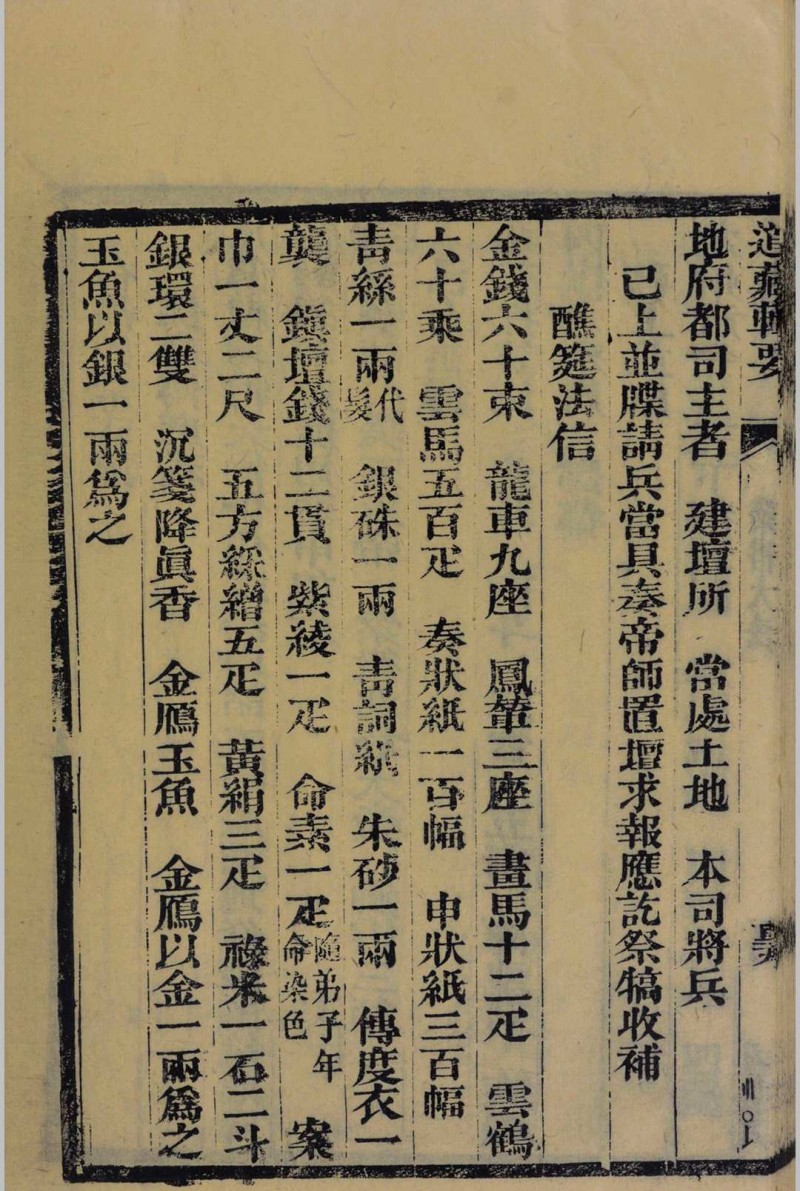 道藏輯要
地府都司主者　建壇所　當處土地　本司將兵
已上並牒請兵當具奏帝師置壇求報應訖祭犒收補
醮筵法信
金錢六十束　龍車九座　鳳輦三座　畫馬十二疋　雲鶴
六十乘　雲馬五百疋　奏狀紙一百幅　申狀紙三百幅
靑絲一兩代髮　銀硃一兩　靑詞紙　朱砂一兩　傳度衣一
襲　鎭壇錢十二貫　紫綾一疋　命素一疋隨弟子年命染色　案
巾一丈二尺　五方綵繒五疋　黃絹三疋　祿米一石二斗
銀環二雙　沉箋降眞香　金鴈玉魚　金鴈以金一兩爲之
玉魚以銀一兩爲之